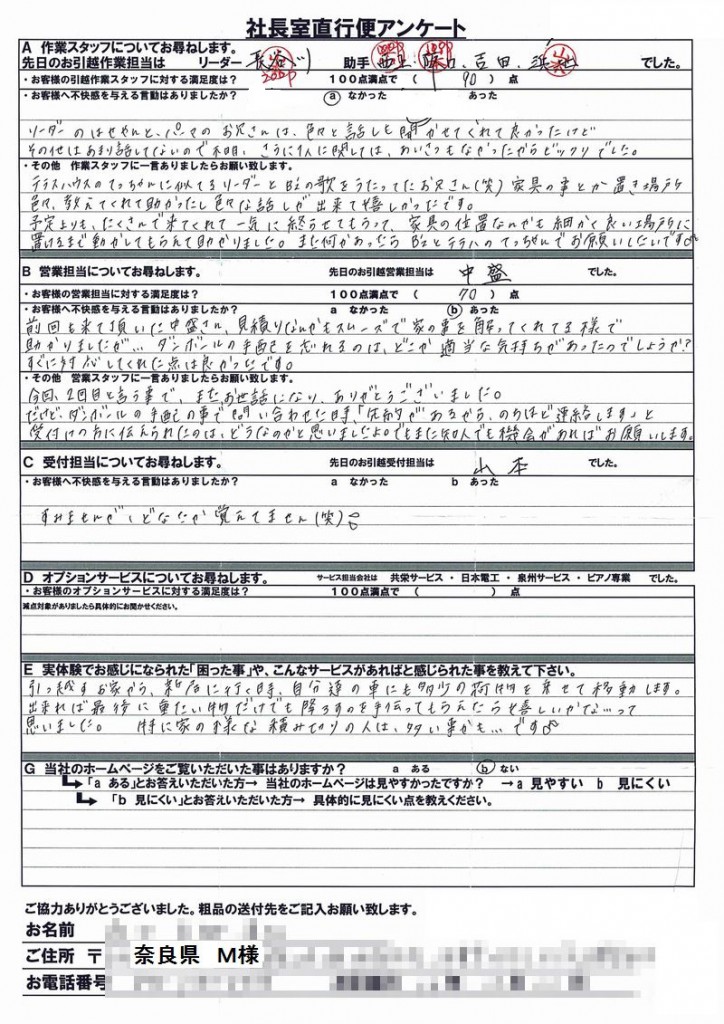 社長室直行便アンケート
A 作業スタッフについてお尋ねします。
先日のお引越作業担当は リーダー 長谷川 助手 西上、 口、吉田、 でした。
・お客様の引越作業スタッフに対する満足度は? 100点満点で ( 90 ) 点
・お客様へ不快感を与える言動はありましたか? a なかった あった
リーダーのはせやんと、パーマのお兄さんは、色々と話しも聞かせてくれて良かったけど
その他はあまり話してないので不明、さらに1人に関しては、あいさつもなかったからビックリでした。
・その他 作業スタッフに一言ありましたらお願い致します。
テラスハウスのてっちゃんに似てるリーダーとB'zの歌をうたってたお兄さん(笑)家具の事とか置き場所
色々、教えてくれて助かったし色々な話しが出来て嬉しかったです。
予定よりも、たくさんで来てくれて一気に終らせてもらって、家具の位置なんかも細かく良い場所に
置けるまで動かしてもらえて助かりました。また何かあったらB'zとテラハのてっちゃんでお願いしたいです
B 営業担当についてお尋ねします。 先日のお引越営業担当は 中盛 でした。
・お客様の営業担当に対する満足度は? 100点満点で ( 70 ) 点
・お客様へ不快感を与える言動はありましたか? a なかった b あった
前回も来て頂いた中盛さん、見積りなんかもスムーズで家の事を解ってくれてる様で
助かりましたが… ダンボールの手配を忘れるのは、どこか適当な気持ちがあったのでしょうか?
すぐに対応してくれた点は良かったです。
・その他 営業スタッフに一言ありましたらお願い致します。
今回、2回目と言う事で、またお世話になり、ありがとうございました。
だけど、ダンボールの手配の事で問い合わせた時、「先約があるから、のちほど連絡します」と
受付けの方に伝えられたのは、どうなのかと思いましたよ。でもまた知人でも機会があればお願いします。
C 受付担当についてお尋ねします。 先日のお引越受付担当は 山本 でした。
・お客様へ不快感を与える言動はありましたか? a なかった b あった
すみませんが、どなたか覚えてません(笑)
D オプションサービスについてお尋ねします。 サービス担当会社は 共栄サービス ・ 日本電工 ・ 泉州サービス ・ ピアノ専業 でした。
・お客様のオプションサービスに対する満足度は? 100点満点で ( ) 点
減点対象がありましたら具体的にお聞かせください。
E 実体験でお感じになられた「困った事」や、こんなサービスがあればと感じられた事を教えて下さい。
引っ越す お家から、新居に行く時、自分達の車にも多少の荷物を乗せて移動します。
出来れば最後に重たい物だけでも降ろすのを手伝ってもらえたら嬉しいかな…って
思いました。 特に家の様な積みきりの人は、多い事かも…です
G 当社のホームページをご覧いただいた事はありますか? a ある b ない
「a ある」とお答えいただいた方→ 当社のホームページは見やすかったですか? →a 見やすい b 見にくい
「b 見にくい」とお答えいただいた方→ 具体的に見にくい点を教えください。
ご協力ありがとうございました。粗品の送付先をご記入お願い致します。
お名前
ご住所 〒 奈良県 M様
お電話番号